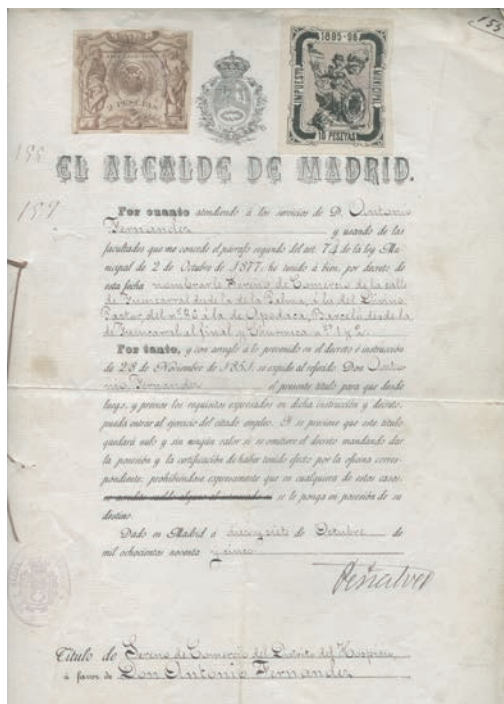 155
2 PESETAS
1895-96
IMPUESTO MUNICIPAL
10 PESETAS
155
EL ALCALDE DE MADRID.
157
Por cuanto atendiendo á los servicios de D. Antonio
Fernandez y usando de las
facultades que me concede el párrafo segundo del art. 74 de la ley Mu-
nicipal de 2 de Octubre de 1877, he tenido á bien, por decreto de
esta fecha nombrarle Sereno de Comercio de la calle
de Fuencarral desde la de la Palma, á la del Divino
Pastor, del nº 85 á la de Apodaca, Barceló desde la
de Fuencarral al final y Churruca nos 1 y 2.
Por tanto, y con arreglo á lo prevenido en el decreto é instrucción
de 28 de Noviembre de 1851, se expide al referido Don Anto
nio Fernandez el presente título para que desde
luego, y previos los requisitos expresados en dicha instrucción y decreto,
pueda entrar al ejercicio del citado empleo. Y se previene que este título
quedará nulo y sin ningún valor si se omitiere el decreto mandando dar
la posesión y la certificación de haber tenido efecto por la oficina corres-
pondiente; prohibiéndose expresamente que en cualquiera de estos casos
se acredite sueldo alguno al interesado ni se le ponga en posesión de su
destino.
Dado en Madrid á diez y siete de Octubre de
mil ochocientos noventa y cinco
Peñalver
Título de Sereno de Comercio del Distrito del Hospicio
á favor de Don Antonio Fernandez